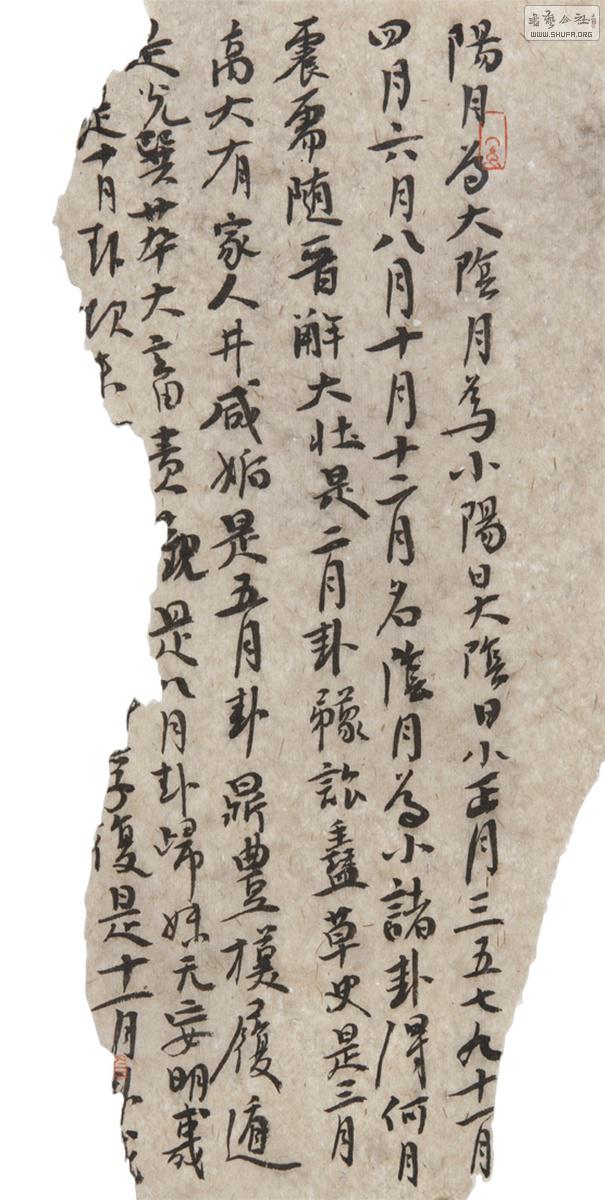 陽月為大陰月為小陽日大陰日小正月三五七九十一月
四月六月八月十月十二月名陰月為小諸卦得何月
震需随晋解大壮是二月卦豫訟蠱革夬是三月
离大有家人井咸姤是五月卦鼎豊渙履遁
兌巽萃大畜賁觀是八月卦歸妹无妄明夷
是十月卦
復是十一月
書藝公社
WWW.SHUFA.ORG